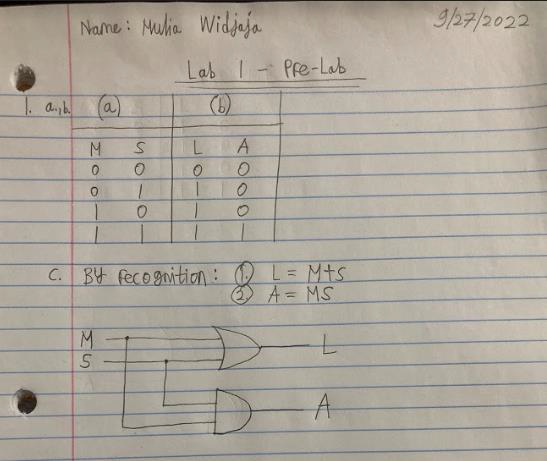 Name: Mulia Widjaja 9/27/2022
Lab 1 - Pre-Lab
1. a., b. (a) (b)
M S L A
0 0 0 0
0 1 1 0
1 0 1 0
1 1 1 1
C. By recognition: 1. L = M+S
2. A = MS
M
S
L
A